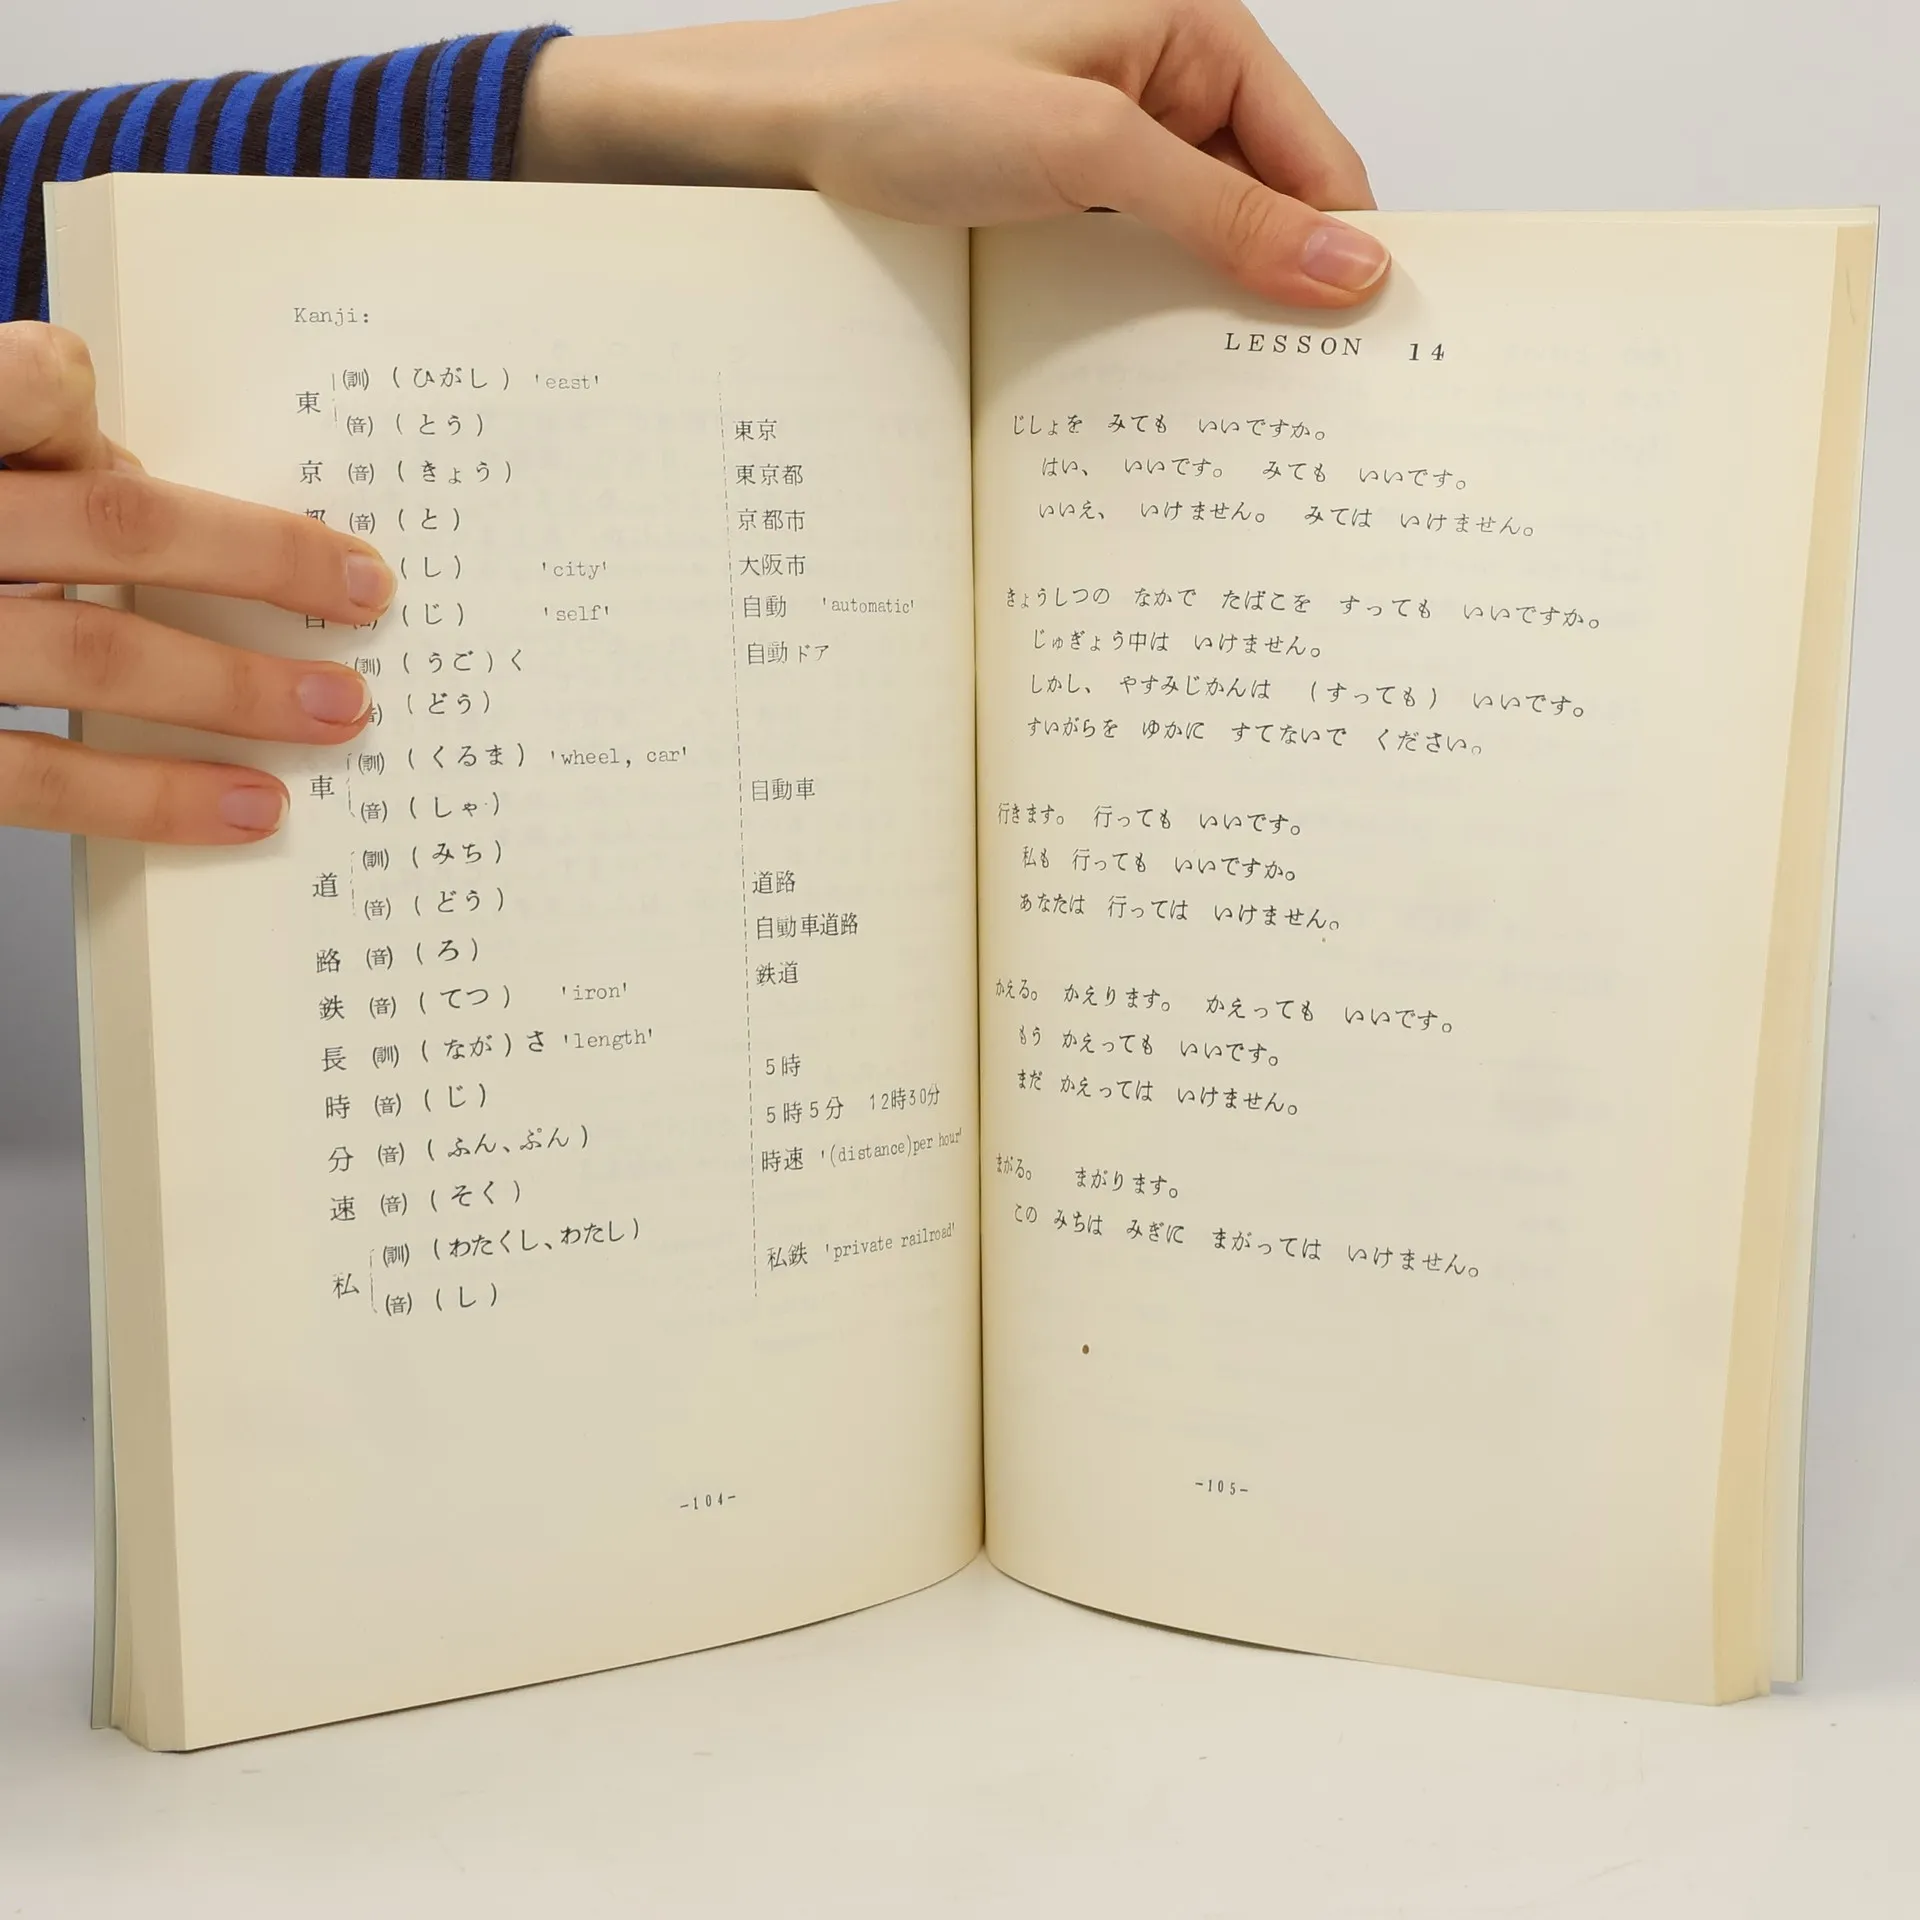 Kanji:
東 (訓) (ひがし) 'east'
(音) (とう) 東京
京 (音) (きょう) 東京都
都 (音) (と) 京都市
(し) 'city' 大阪市
(じ) 'self' 自動 'automatic'
(訓) (うご)く 自動ドア
(どう)
車 (訓) (くるま) 'wheel, car' 自動車
(音) (しゃ)
道 (訓) (みち) 道路
(音) (どう) 自動車道路
路 (音) (ろ) 鉄道
鉄 (音) (てつ) 'iron'
長 (訓) (なが)さ 'length' 5時
時 (音) (じ) 5時5分 12時30分
分 (音) (ふん、ぷん) 時速 '(distance)per hour'
速 (音) (そく)
私 (訓) (わたくし、わたし) 私鉄 'private railroad'
(音) (し)
-104-
LESSON 14
じしょを みても いいですか。
はい、 いいです。 みても いいです。
いいえ、 いけません。 みては いけません。
きょうしつの なかで たばこを すっても いいですか。
じゅぎょう中は いけません。
しかし、 やすみじかんは (すっても) いいです。
すいがらを ゆかに すてないで ください。
行きます。 行っても いいです。
私も 行っても いいですか。
あなたは 行っては いけません。
かえる。 かえります。 かえっても いいです。
もう かえっても いいです。
まだ かえっては いけません。
まがる。 まがります。
この みちは みぎに まがっては いけません。
-105-